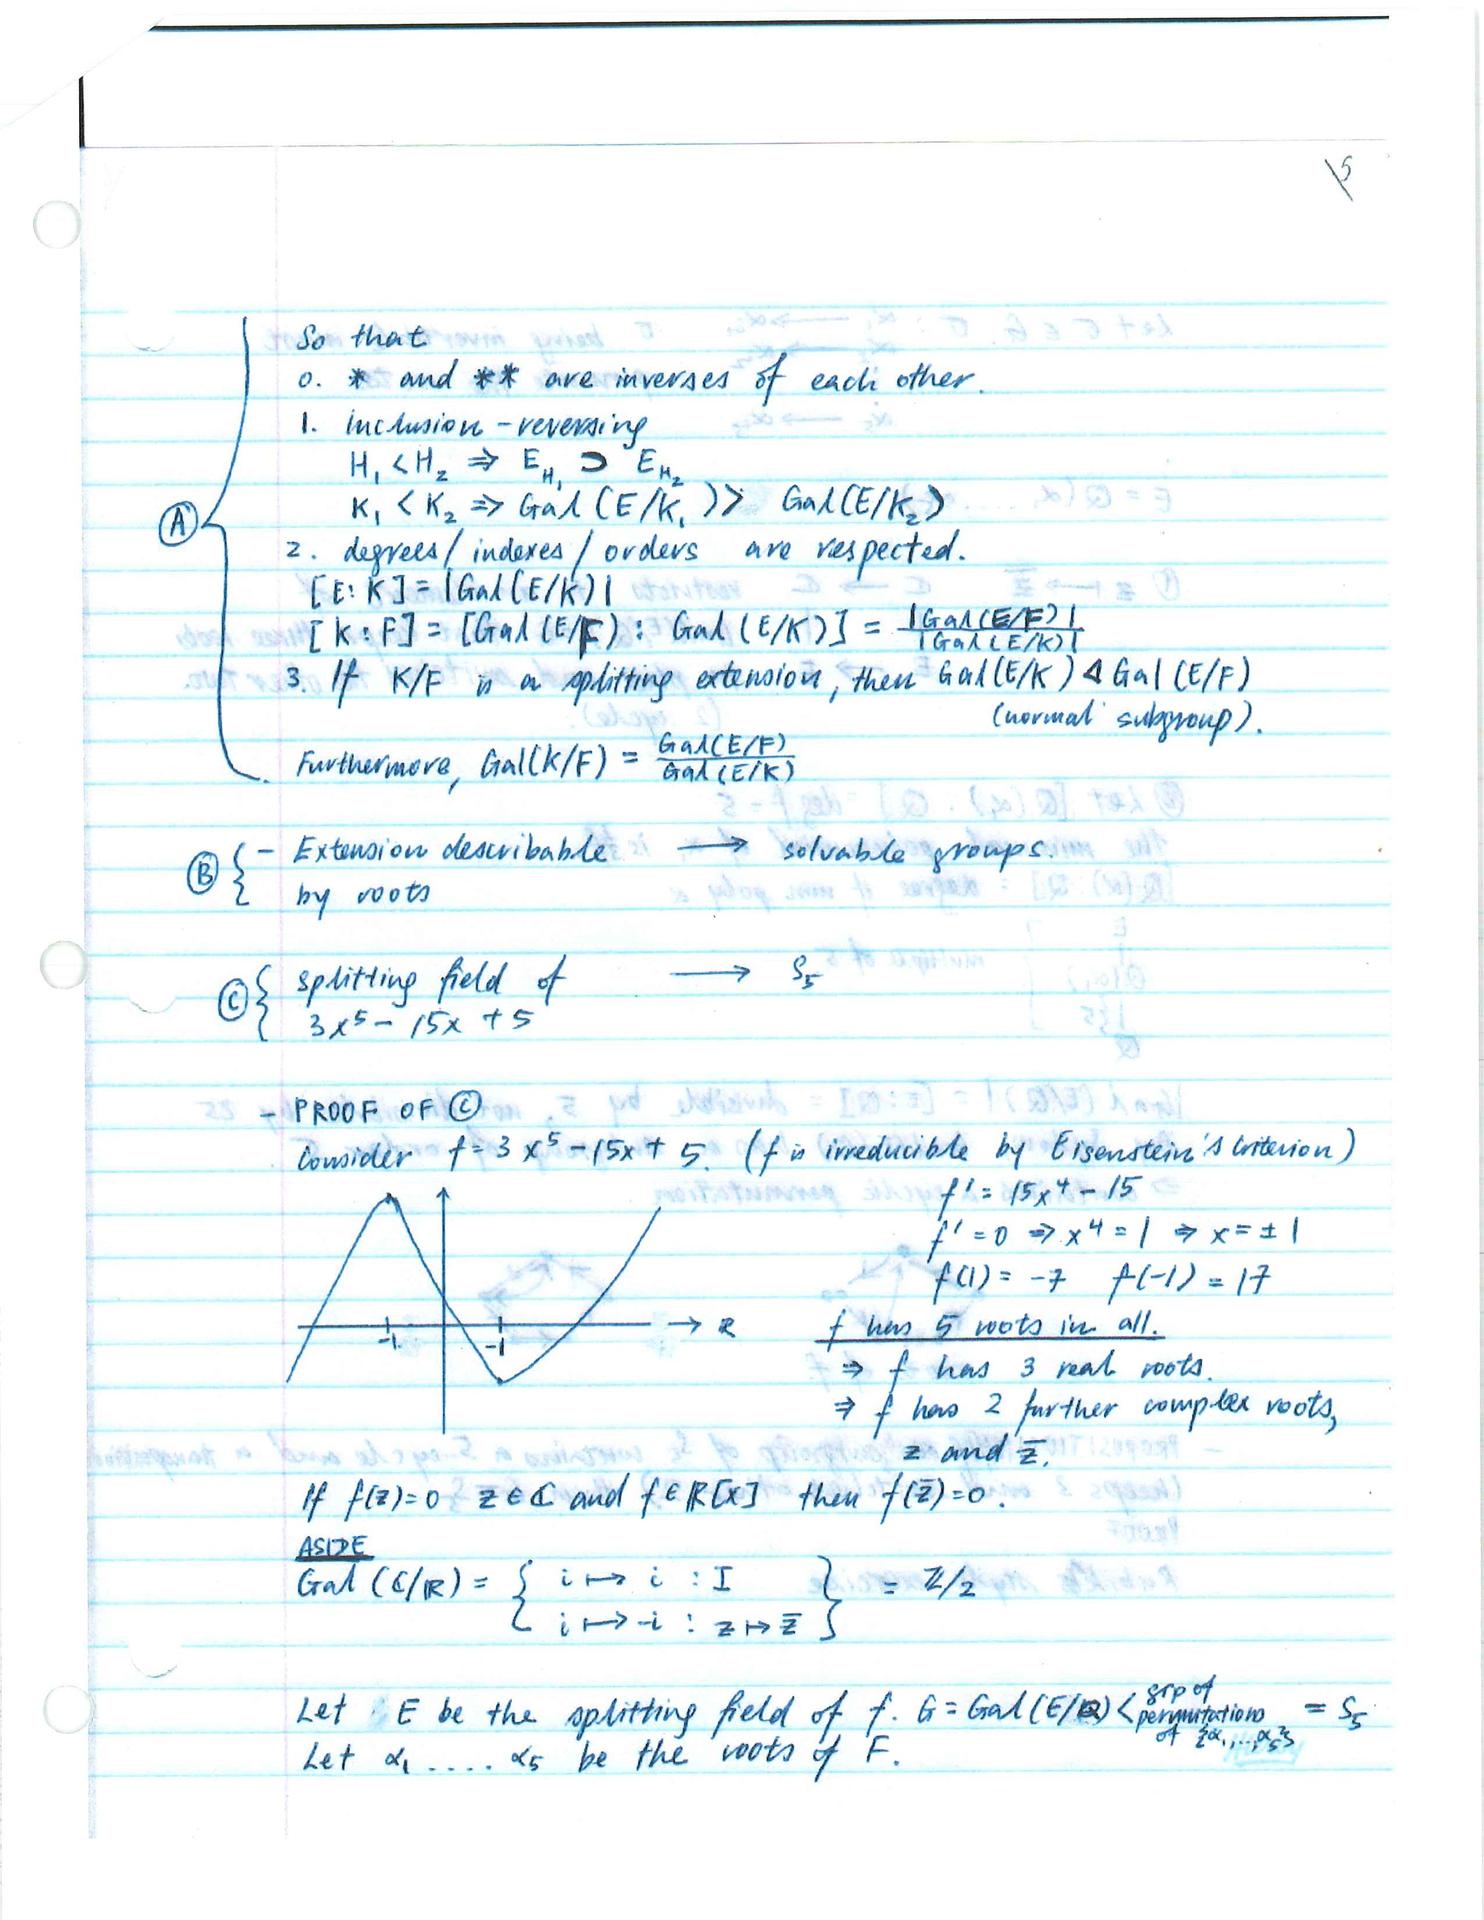 15
So that
0. * and ** are inverses of each other.
1. inclusion-reversing
H₁ < H₂ ⇒ E_H₁ ⊃ E_H₂
K₁ < K₂ ⇒ Gal(E/K₁) > Gal(E/K₂)
Ⓐ
2. degrees/indexes/orders are respected.
[E:K] = |Gal(E/K)|
[K:F] = [Gal(E/F) : Gal(E/K)] = |Gal(E/F)| / |Gal(E/K)|
3. If K/F is a splitting extension, then Gal(E/K) ⊲ Gal(E/F)
(normal subgroup).
Furthermore, Gal(K/F) = Gal(E/F) / Gal(E/K)
Ⓑ { - Extension describable → solvable groups.
by roots
Ⓒ { splitting field of → S₅
3x⁵ - 15x + 5
- PROOF OF Ⓒ
Consider f = 3x⁵ - 15x + 5. (f is irreducible by Eisenstein's Criterion)
f' = 15x⁴ - 15
f' = 0 ⇒ x⁴ = 1 ⇒ x = ±1
f(1) = -7 f(-1) = 17
-1 -1 → R
f has 5 roots in all.
⇒ f has 3 real roots.
⇒ f has 2 further complex roots,
z and z̅.
If f(z)=0 z ∈ ℂ and f ∈ ℝ[x] then f(z̅)=0.
ASIDE
Gal(ℂ/ℝ) = { i ↦ i : I } = ℤ/2
i ↦ -i : z ↦ z̅
Let E be the splitting field of f. G = Gal(E/ℚ) < grp of permutations of {α₁,..,α₅} = S₅
Let α₁ .... α₅ be the roots of F.